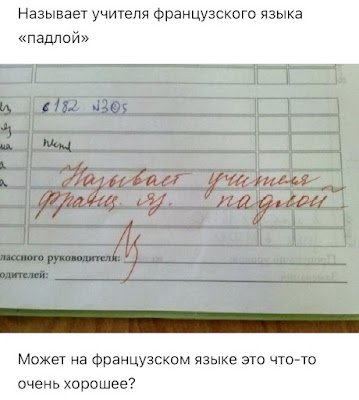 Называет учителя французского языка
«падлой»
с 182 №305
яз
нет
Называет учителя
франц. яз. падлой
лассного руководителя:
одителей:
Может на французском языке это что-то
очень хорошее?